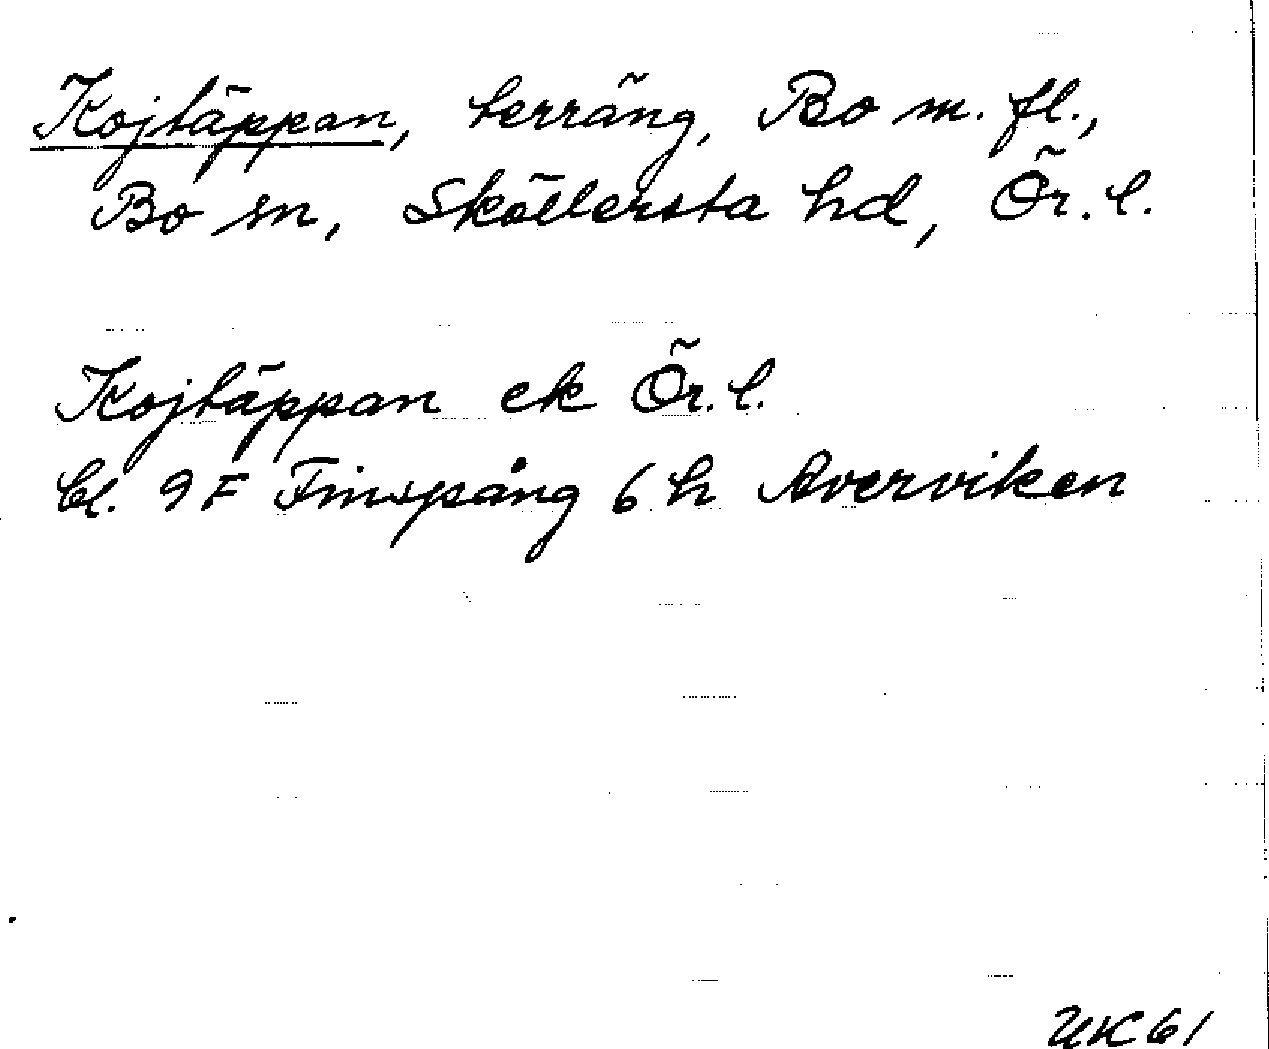 Kojtäppan, terräng, Bo m. fl.,
Bo sn, Sköllersta hd, Ör. l.
Kojtäppan ek Ör. l.
bl. 9F Finspång 6 h Averviken
UK 61